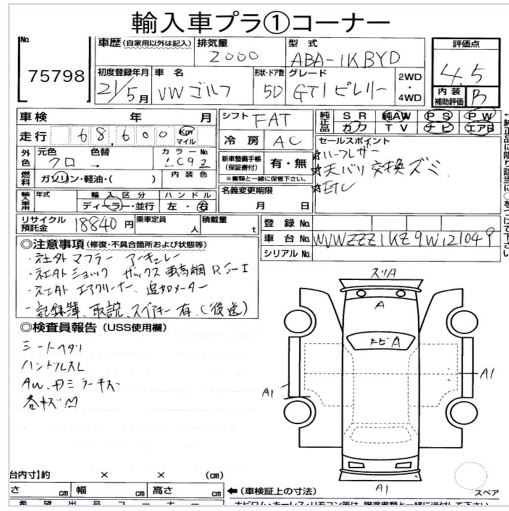 輸入車プラ①コーナー
No.
75798
車歴(自家用以外は記入) 排気量 2000 型式 ABA-1KBYD
評価点 4.5
内装補助評価 B
初度登録年月 21/5月 車名 VWゴルフ 形状・ドア数 5D グレード GTI ピレリー 2WD・4WD
車検 年 月
シフト FAT
走行 68,600 km マイル
冷房 AC
純正品 SR 純AW PS PW
カワ TV ナビ エアB
外色 元色 クロ 色替 カラーNo. LC9Z
新車整備手帳(保証書付) 有・無
※書類と一緒に保管下さい。
セールスポイント
☆ハーフレザー
☆天バリ交換ズミ
燃料 ガソリン・軽油・( ) 内装色
輸入車用 年式 輸入区分 ディーラー・並行 ハンドル 左・右
名義変更期限 月 日
リサイクル預託金 18840円 乗車定員 人 積載量 t
登録No.
車台No. WVWZZZ1KZ9W121049
シリアルNo.
◎注意事項(修復・不具合箇所および状態等)
・社外マフラー アーキュレー
・社外ショック ザックス 車高調 RS-1
・社外エアクリーナー 追加メーター
・記録簿、取説、スペアキー有、(後送)
◎検査員報告(USS使用欄)
シートヘタリ
ハンドルスレ
AW、ドアミラーキズ
各キズ凹
スリA
A
トビA
A1
A1
A1
台内寸) × × (cm)
さ cm 幅 cm 高さ cm
(車検証上の寸法)
スペア